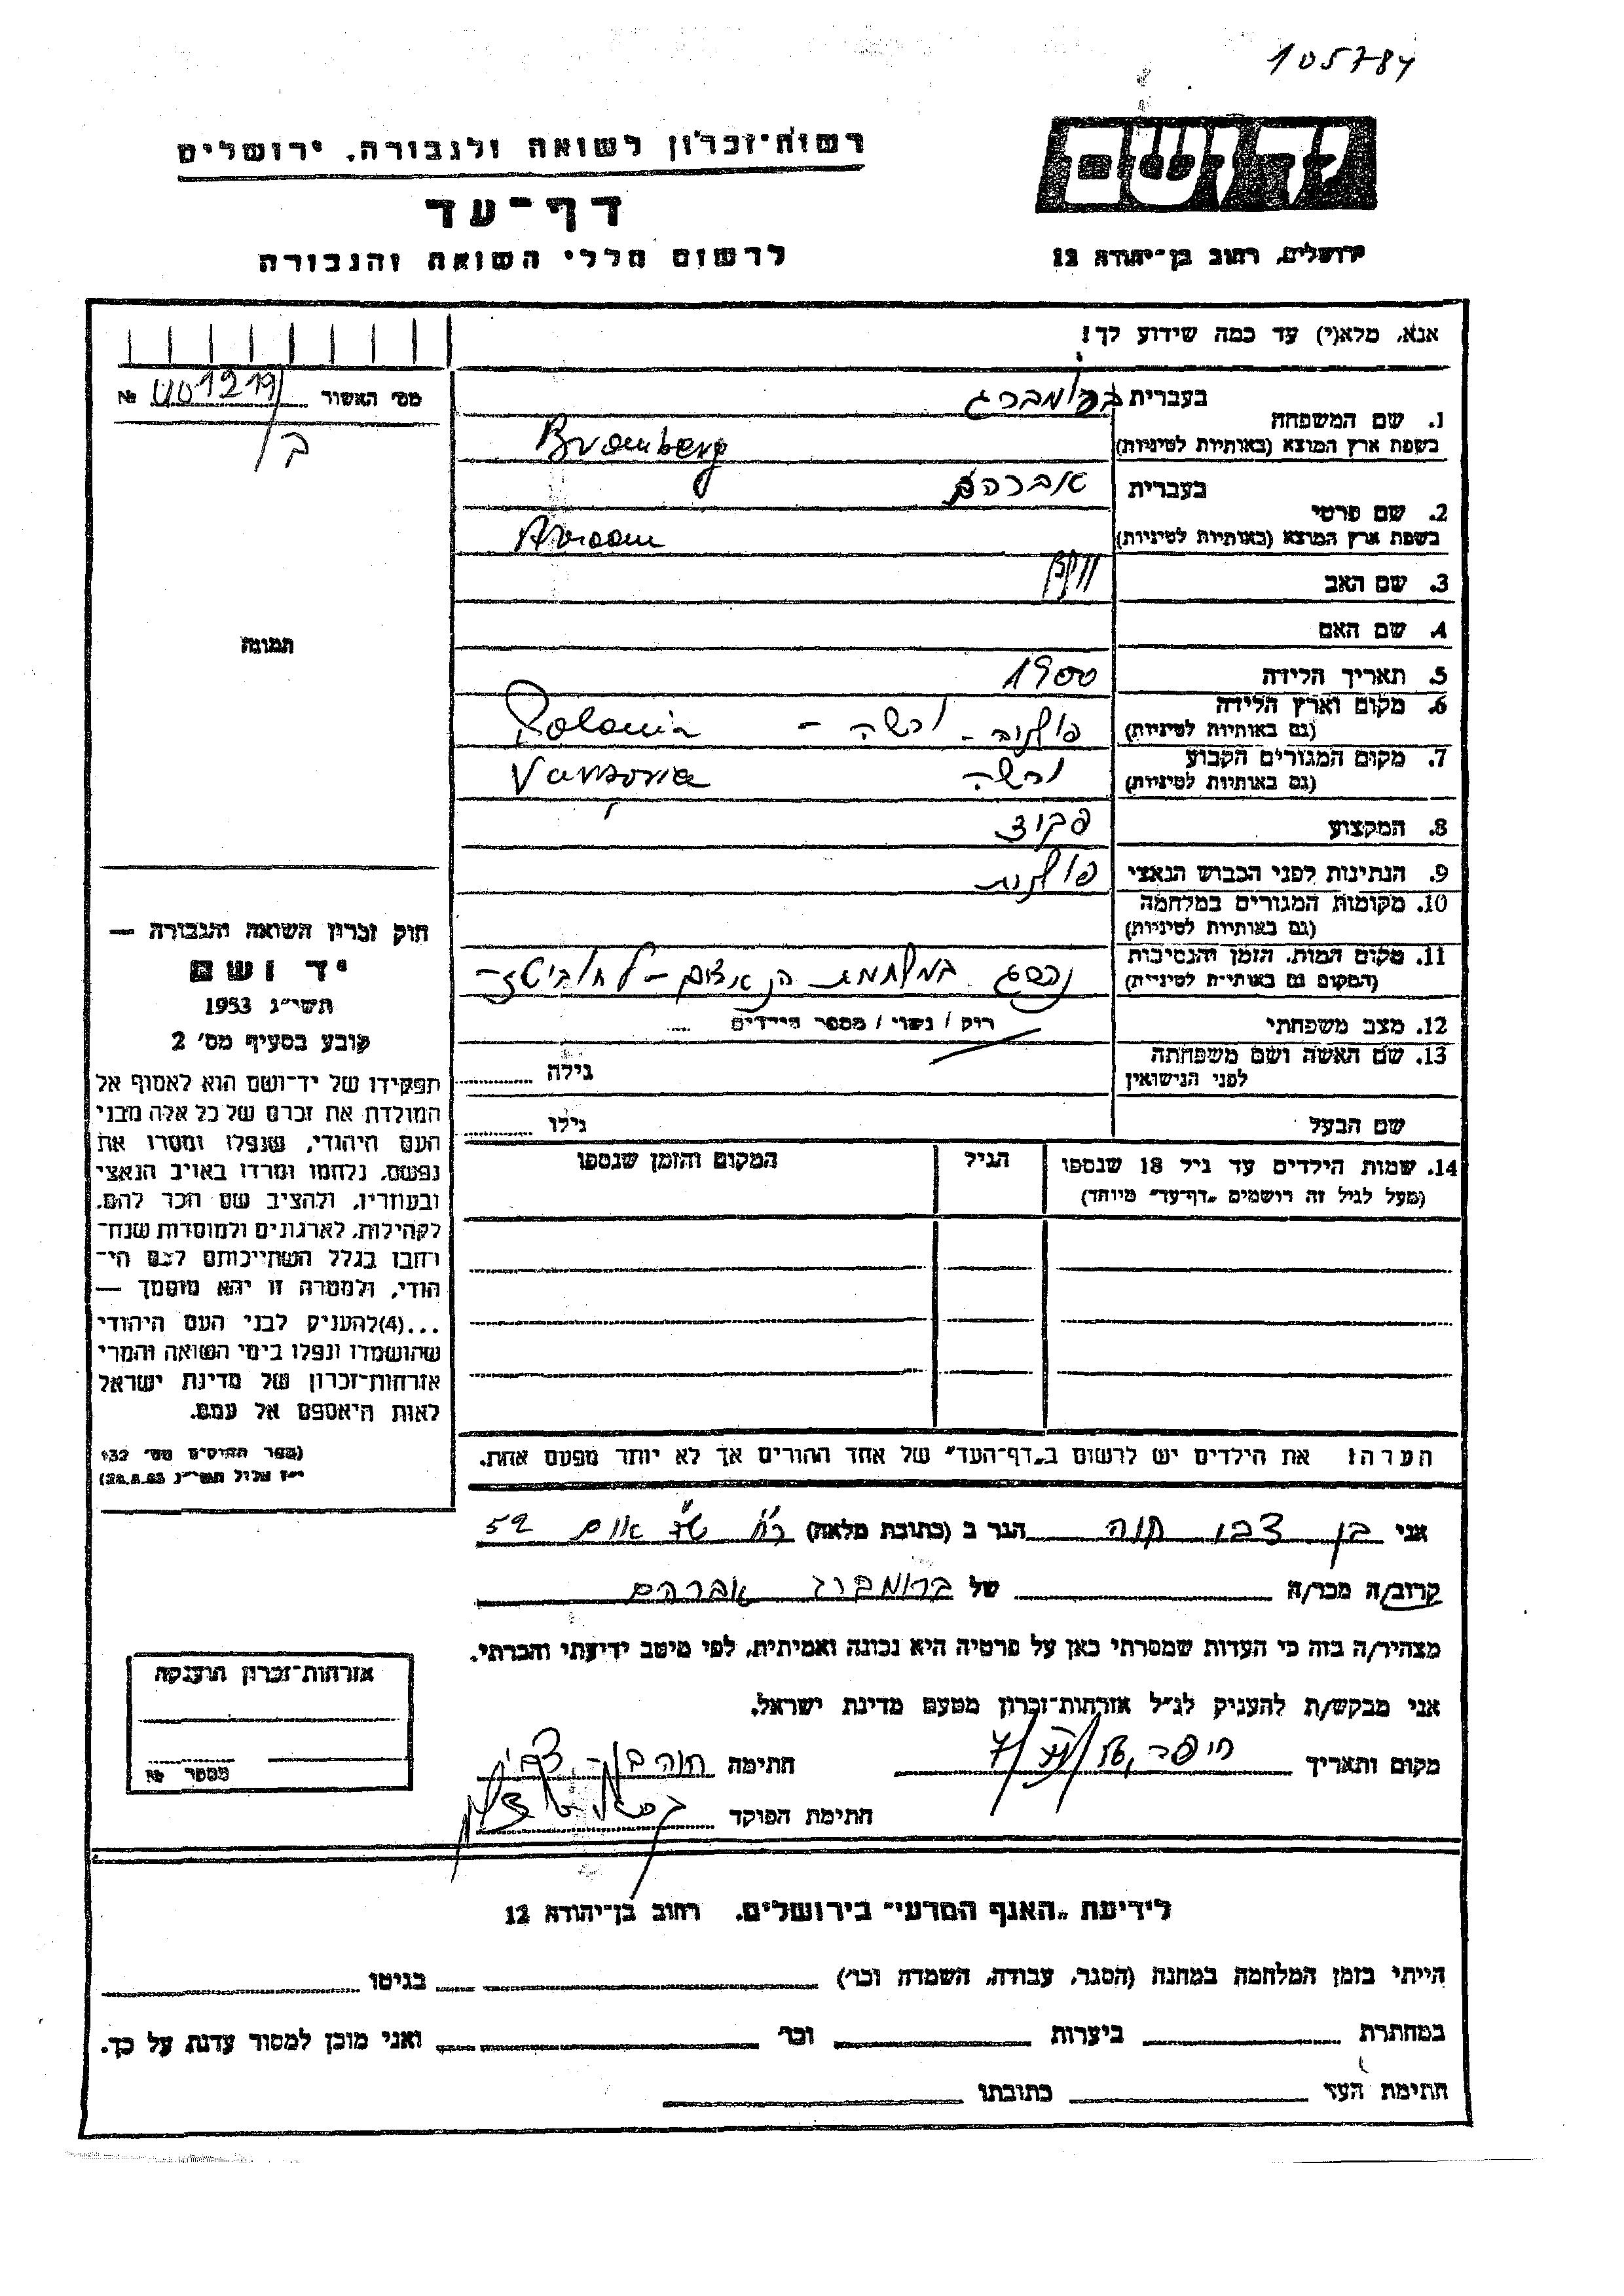 105784
יד ושם
רשות-זכרון לשואה ולגבורה, ירושלים
דף-עד
לרשום חללי השואה והגבורה
ירושלים, רחוב בן-יהודה 12
אנא, מלא(י) עד כמה שידוע לך!
מס' האשור №
1. שם המשפחה בעברית ברומברג
בשפת ארץ המוצא (באותיות לטיניות) Bromberg
2. שם פרטי בעברית אברהם
בשפת ארץ המוצא (באותיות לטיניות)
3. שם האב
4. שם האם
5. תאריך הלידה 1900
6. מקום וארץ הלידה פולניה - ורשה - Polonia
(גם באותיות לטיניות)
7. מקום המגורים הקבוע ורשה
(גם באותיות לטיניות)
8. המקצוע פקיד
9. הנתינות לפני הכבוש הנאצי פולנית
10. מקומות המגורים במלחמה
(גם באותיות לטיניות)
11. מקום המות, הזמן והנסיבות נהרג במלחמת הנאצים -
(המקום גם באותיות לטיניות)
12. מצב משפחתי רווק / נשוי / מספר הילדים
13. שם האשה ושם משפחתה
לפני הנישואין גילה
שם הבעל גילו
14. שמות הילדים עד גיל 18 שנספו הגיל המקום והזמן שנספו
(מעל לגיל זה רושמים "דף-עד" מיוחד)
הערה: את הילדים יש לרשום ב"דף-העד" של אחד ההורים אך לא יותר מפעם אחת.
תמונה
חוק זכרון השואה והגבורה —
יד ושם
תשי"ג 1953
קובע בסעיף מס' 2
תפקידו של יד-ושם הוא לאסוף אל
המולדת את זכרם של כל אלה מבני
העם היהודי, שנפלו ומסרו את
נפשם, נלחמו ומרדו באויב הנאצי
ובעוזריו, ולהציב שם וזכר להם,
לקהילות, לארגונים ולמוסדות שנח-
רבו בגלל השתייכותם לעם הי-
הודי, ולמטרה זו יהא מוסמך —
...(4)להעניק לבני העם היהודי
שהושמדו ונפלו בימי השואה והמרי
אזרחות-זכרון של מדינת ישראל
לאות היאספם אל עמם.
(ספר החוקים מס' 132
י"ז אלול תשי"ג 28.8.53)
אני בן צבי חוה הגר ב (כתובת מלאה) רח' 52
קרוב/ה מכר/ה של ברומברג אברהם
מצהיר/ה בזה כי העדות שמסרתי כאן על פרטיה היא נכונה ואמיתית, לפי מיטב ידיעתי והכרתי.
אני מבקש/ת להעניק לנ"ל אזרחות-זכרון מטעם מדינת ישראל.
מקום ותאריך חיפה, חתימה חוה בן צבי
חתימת הפוקד
אזרחות-זכרון הוענקה
מספר №
לידיעת "האגף המדעי" בירושלים, רחוב בן-יהודה 12
הייתי בזמן המלחמה במחנה (הסגר, עבודה, השמדה וכו') בגיטו
במחתרת ביערות וכו' ואני מוכן למסור עדות על כך.
חתימת העד כתובתו